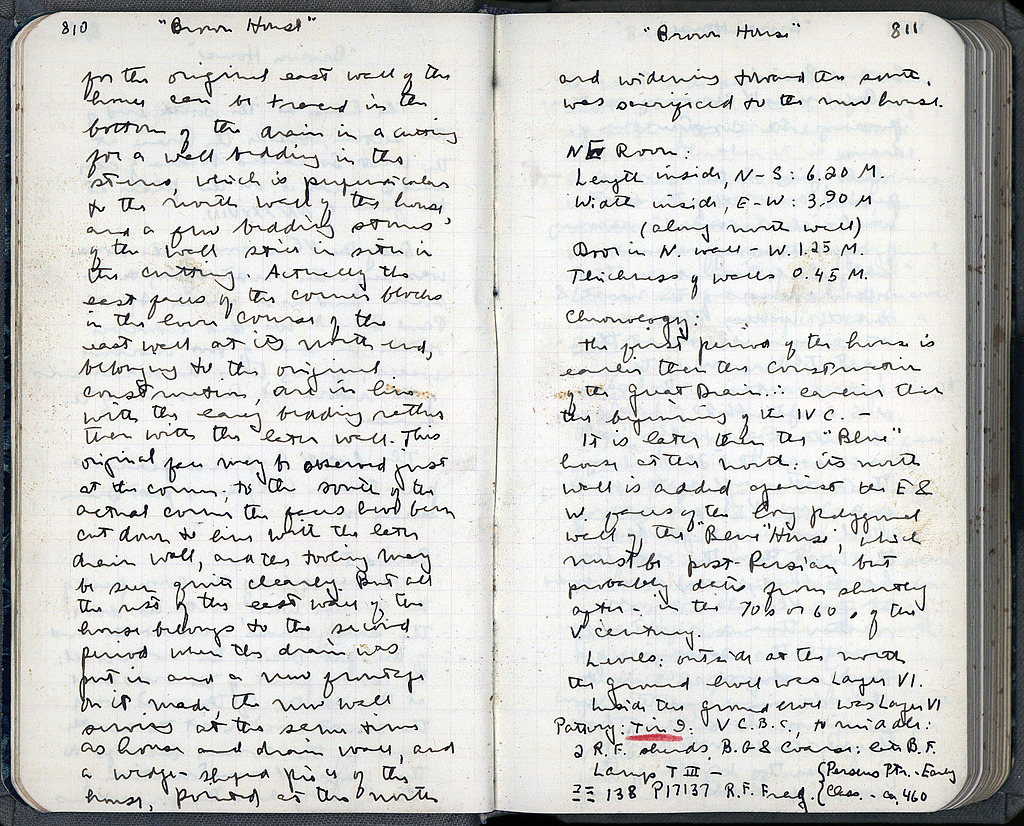 810 "Brown House"
for the original east wall of the
house can be traced in the
bottom of the drain in a cutting
for a wall bedding in the
stereo, which is perpendicular
to the north wall of the house,
and a few bedding stones
of the wall still in situ in
the cutting. Actually the
east faces of the corner blocks
in the lower course of the
east wall at its north end,
belonging to the original
construction, are in line
with the early bedding rather
than with the later wall. This
original face may be observed just
at the corner. to the south of the
actual corner the faces have been
cut down to line with the later
drain wall, and the tooling may
be seen quite clearly. But all
the rest of the east wall of the
house belongs to the second
period when the drain was
put in and a new frontage
on it made, the new wall
serving at the same time
as house and drain wall, and
a wedge-shaped piece of the
house, pointed at the north
"Brown House" 811
and widening toward the south,
was sacrificed to the new house.
NE Room:
Length inside, N-S: 6.20 M.
Width inside, E-W: 3.90 M
(along north wall)
Door in N. wall - W. 1.25 M.
Thickness of walls 0.45 M.
Chronology:
The first period of the house is
earlier than the construction
of the Great Drain ∴ earlier than
the beginning of the IV C. -
It is later than the "Blue"
house at the north: its north
wall is added against the E &
W faces of the long polygonal
wall of the "Blue" House, which
must be post-Persian but
probably dates from shortly
after - in the 70s or 60s of the
V century.
Levels: outside at the north
the ground level was Layer VI.
Inside the ground level was Layer VI
Pottery: Tin 9: V C. B.C., to middle:
2 R.F. sherds, B.G & Coarse: late B.F.
Lamps T III -
138 P17137 R.F. Frag. {Perseus Ptr. - Early
Class. - ca. 460